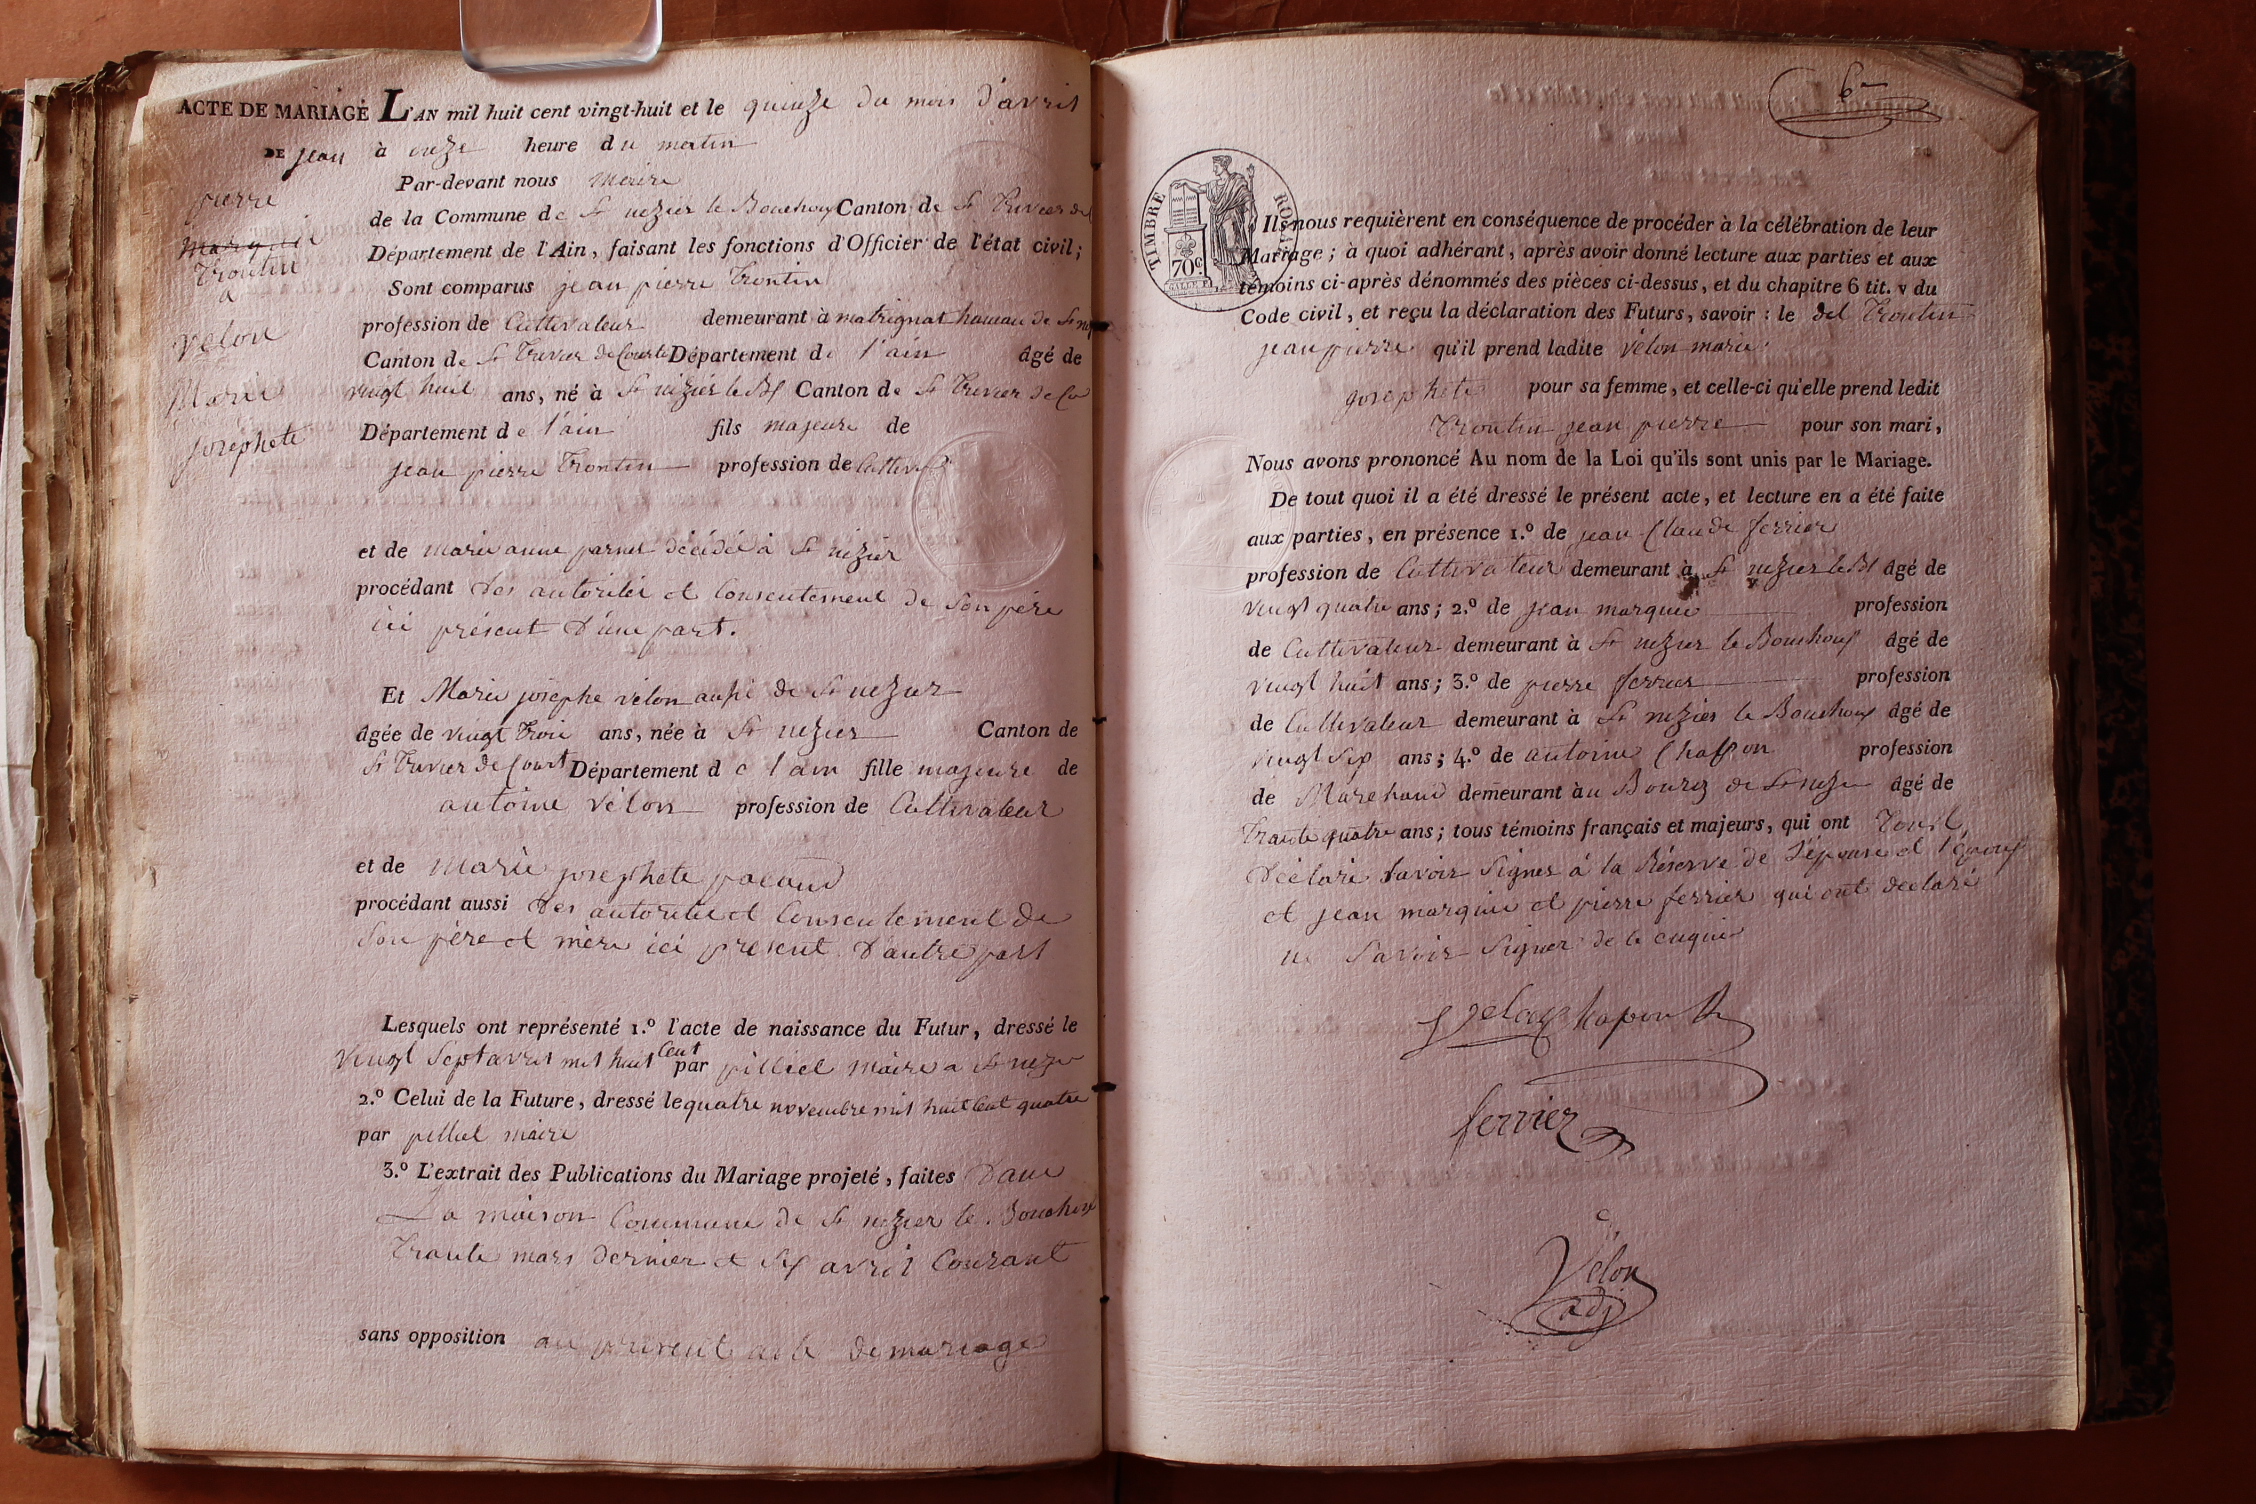 ACTE DE MARIAGE L'AN mil huit cent vingt-huit et le quinze du mois d'avril
DE jean à onze heure du matin
pierre
Par-devant nous maire
de la Commune de St nezier le Bouchoux Canton de St Trivier de
marquis
Trontin
à
vélon
Marie
josephete
Département de l'Ain, faisant les fonctions d'Officier de l'état civil;
Sont comparus jean pierre Trontin
profession de Cultivateur demeurant à matrignat hameau de St
Canton de St Trivier de Courte Département de l'ain âgé de
vingt huit ans, né à St nizier le Bx Canton de St Trivier de Co
Département de l'ain fils majeure de
jean pierre Trontin profession de Cultiv
et de marie anne parnet décédée à St nezier
procédant des autorités et Consentement de Son père
ici présent d'une part.
Et Marie josephe vélon aussi de St nezier
âgée de vingt Trois ans, née à St nezier Canton de
St Trivier de Court Département de l'ain fille majeure de
antoine vélon profession de Cultivateur
et de marie josephete pacaud
procédant aussi des autorités et Consentement de
Son père et mère ici present d'autre part
Lesquels ont représenté 1.º l'acte de naissance du Futur, dressé le
vingt Sept avril mil huit Cent par pilliel maire a St nezier
2.º Celui de la Future, dressé le quatre novembre mil huit Cent quatre
par pilliel maire
3.º L'extrait des Publications du Mariage projeté, faites dans
La maison Commune de St nezier le Bouchoux
Trante mars dernier et Six avril Courant
sans opposition au présent acte de mariage
6
TIMBRE ROYAL
70c.
Ils nous requièrent en conséquence de procéder à la célébration de leur
Mariage; à quoi adhérant, après avoir donné lecture aux parties et aux
témoins ci-après dénommés des pièces ci-dessus, et du chapitre 6 tit. v du
Code civil, et reçu la déclaration des Futurs, savoir: le dit Trontin
jean pierre qu'il prend ladite vélon marie
josephete pour sa femme, et celle-ci qu'elle prend ledit
Trontin jean pierre pour son mari,
Nous avons prononcé Au nom de la Loi qu'ils sont unis par le Mariage.
De tout quoi il a été dressé le présent acte, et lecture en a été faite
aux parties, en présence 1.º de jean Claude ferrier
profession de Cultivateur demeurant à St nezier le Bx âgé de
vingt quatre ans; 2.º de jean marquis profession
de Cultivateur demeurant à St nezier le Bouchoux âgé de
vingt huit ans; 3.º de pierre ferrier profession
de Cultivateur demeurant à St nezier le Bouchoux âgé de
vingt Six ans; 4.º de antoine Chapon profession
de Marchand demeurant àu Bourg de St nezier âgé de
Trante quatre ans; tous témoins français et majeurs, qui ont Tous
déclaré Savoir Signer à la Réserve de l'épouse et l'époux
et jean marquis et pierre ferrier qui ont déclaré
ne Savoir Signer de ce enquis
Chapon
ferrier
Vélon
adj